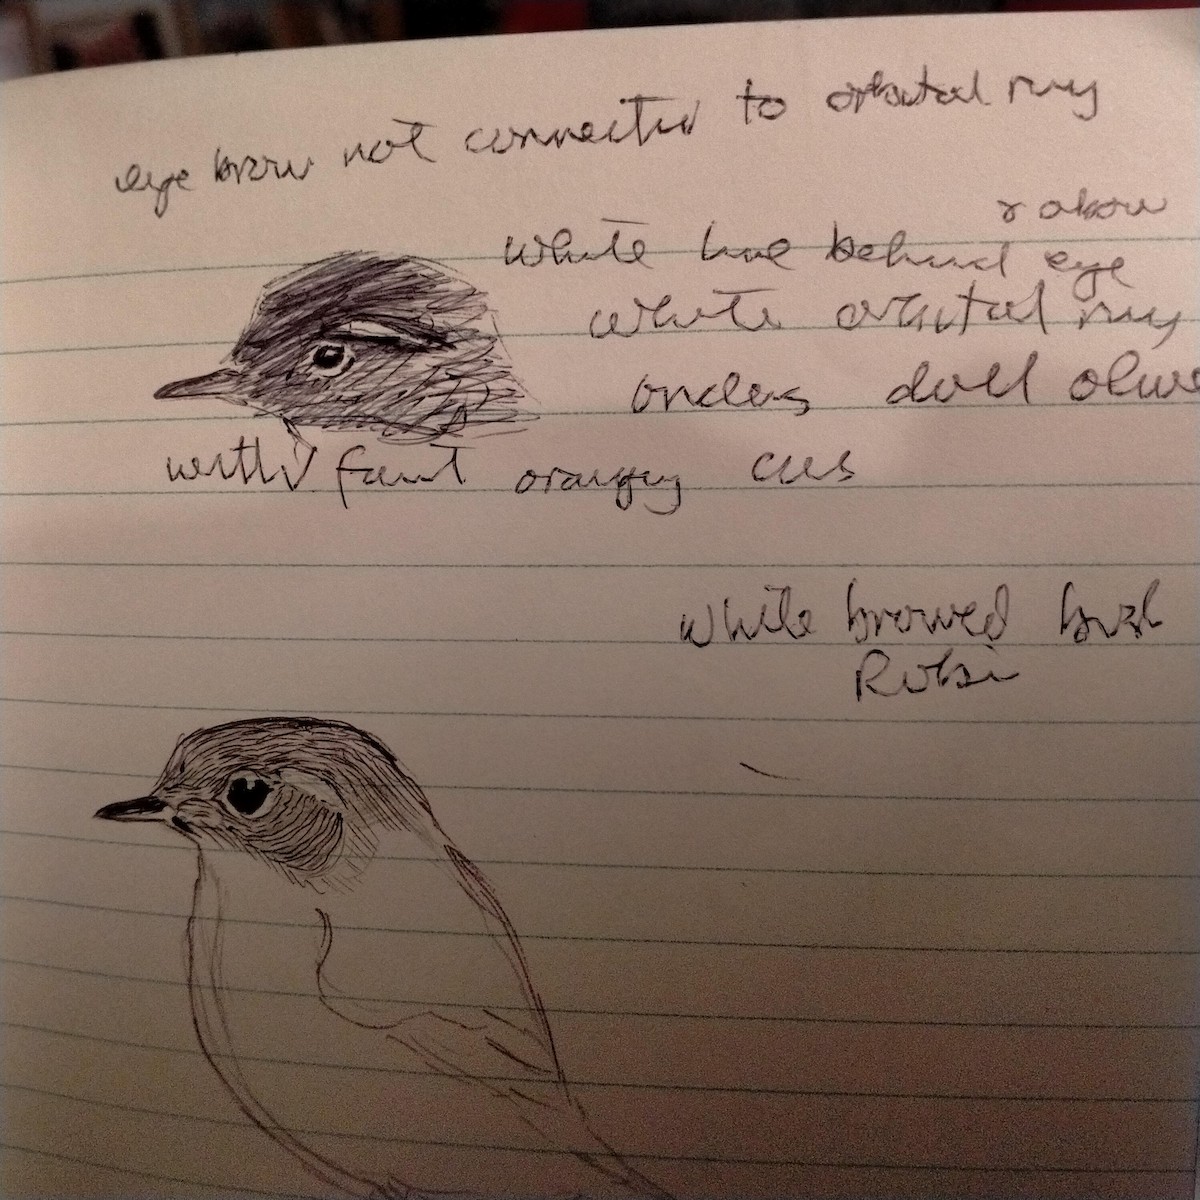 eye brow not connected to orbital ring
& above
white line behind eye
white orbital ring
unders dull olive
with faint orangy
white browed bush
Robin